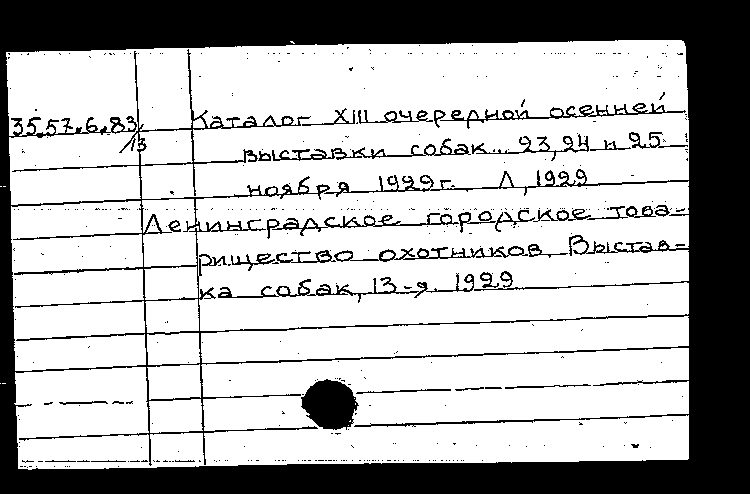 35.57.6.83/13 Каталог XIII очередной осенней
выставки собак... 23, 24 и 25
ноября 1929г. Л, 1929
Ленинградское городское това-
рищество охотников. Выстав-
ка собак, 13-я. 1929